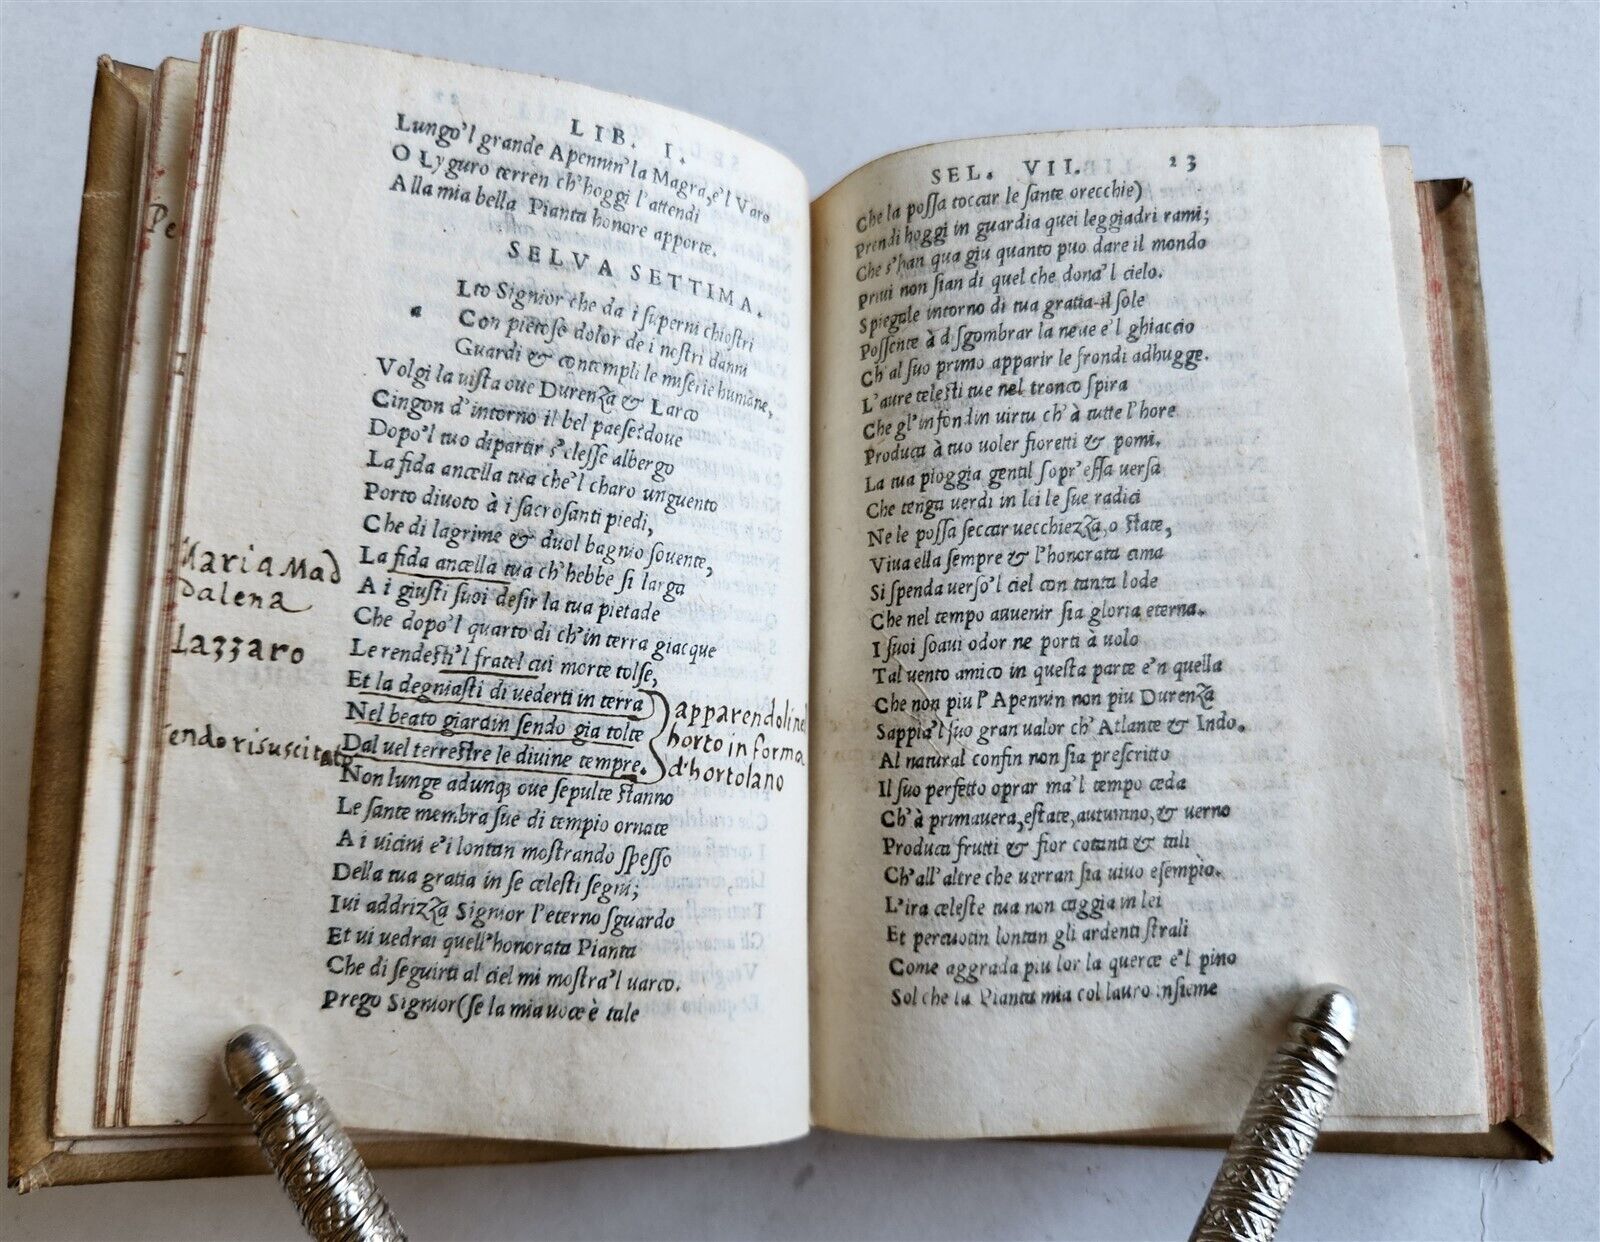 LIB. I.
Lungo'l grande Apennin'la Magra, e'l Varo
O Lyguro terren ch'hoggi l'attendi
Alla mia bella Pianta honore apporte.
SELVA SETTIMA.
Lto Signior che da i ſuperni chioſtri
a
Con pietoſe dolor de i noſtri danni
Guardi & contempli le miſerie humane,
Volgi la uiſta oue Durenza & Larco
Cingon d'intorno il bel paeſe: doue
Dopo'l tuo dipartir s'eleſſe albergo
La fida ancella tua che'l charo unguento
Porto diuoto à i ſacroſanti piedi,
Che di lagrime & duol bagnio ſouente,
La fida ancella tua ch'hebbe ſi larga
Maria Mad
dalena
A i giuſti ſuoi deſir la tua pietade
Che dopo'l quarto di ch'in terra giacque
Lazzaro
Le rendeſti'l fratel cui morte tolſe,
Et la degniaſti di uederti in terra
Nel beato giardin ſendo gia tolte
Dal uel terreſtre le diuine tempre.
apparendoli nel
horto in forma
d'hortolano
endo risuscitato
Non lunge adunq; oue ſepulte ſtanno
Le ſante membra ſue di tempio ornate
A i uicini e'i lontan moſtrando ſpeſſo
Della tua gratia in ſe celeſti ſegni;
Iui addrizza Signior l'eterno ſguardo
Et ui uedrai quell'honorata Pianta
Che di ſeguirti al ciel mi moſtra'l uarco.
Prego Signior (ſe la mia uoce è tale
Pe
SEL. VII. 23
Che la poſſa toccar le ſante orecchie)
Prendi hoggi in guardia quei leggiadri rami;
Che s'han qua giu quanto puo dare il mondo
Priui non ſian di quel che dona'l cielo.
Spiegale intorno di tua gratia il ſole
Poſſente à diſgombrar la neue e'l ghiaccio
Ch'al ſuo primo apparir le frondi adhugge.
L'aure celeſti tue nel tronco ſpira
Che gl'infondin uirtu ch'à tutte l'hore
Produca à tuo uoler fioretti & pomi.
La tua pioggia gentil ſopr'eſſa uerſa
Che tenga uerdi in lei le ſue radici
Ne le poſſa ſeccar uecchiezza, o ſtate,
Viua ella ſempre & l'honorata cima
Si ſpenda uerſo'l ciel con tanta lode
Che nel tempo auuenir ſia gloria eterna.
I ſuoi ſoaui odor ne porti à uolo
Tal uento amico in queſta parte e'n quella
Che non piu l'Apennin non piu Durenza
Sappia'l ſuo gran ualor ch'Atlante & Indo.
Al natural confin non ſia preſcritto
Il ſuo perfetto oprar ma'l tempo ceda
Ch'à primauera, eſtate, autumno, & uerno
Produca frutti & fior cotanti & tali
Ch'all'altre che uerran ſia uiuo eſempio.
L'ira celeſte tua non caggia in lei
Et percuotin lontan gli ardenti ſtrali
Come aggrada piu lor la querce e'l pino
Sol che la Pianta mia col lauro inſieme